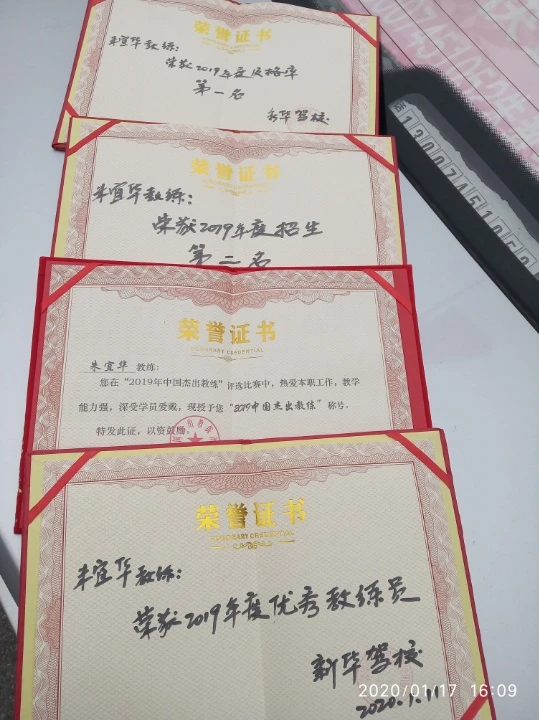 荣誉证书
朱宜华教练:
荣获2019年度及格率
第一名
新华驾校
荣誉证书
HONORARY CREDENTIAL
朱宜华教练:
荣获2019年度招生
第二名
荣誉证书
HONORARY CREDENTIAL
朱宜华 教练:
您在“2019年中国杰出教练”评选比赛中，热爱本职工作，教学
能力强，深受学员爱戴，现授予您“2019中国杰出教练”称号。
特发此证，以资鼓励
荣誉证书
HONORARY CREDENTIAL
朱宜华教练:
荣获2019年度优秀教练员
新华驾校
2020.1.11
2020/01/17 16:09